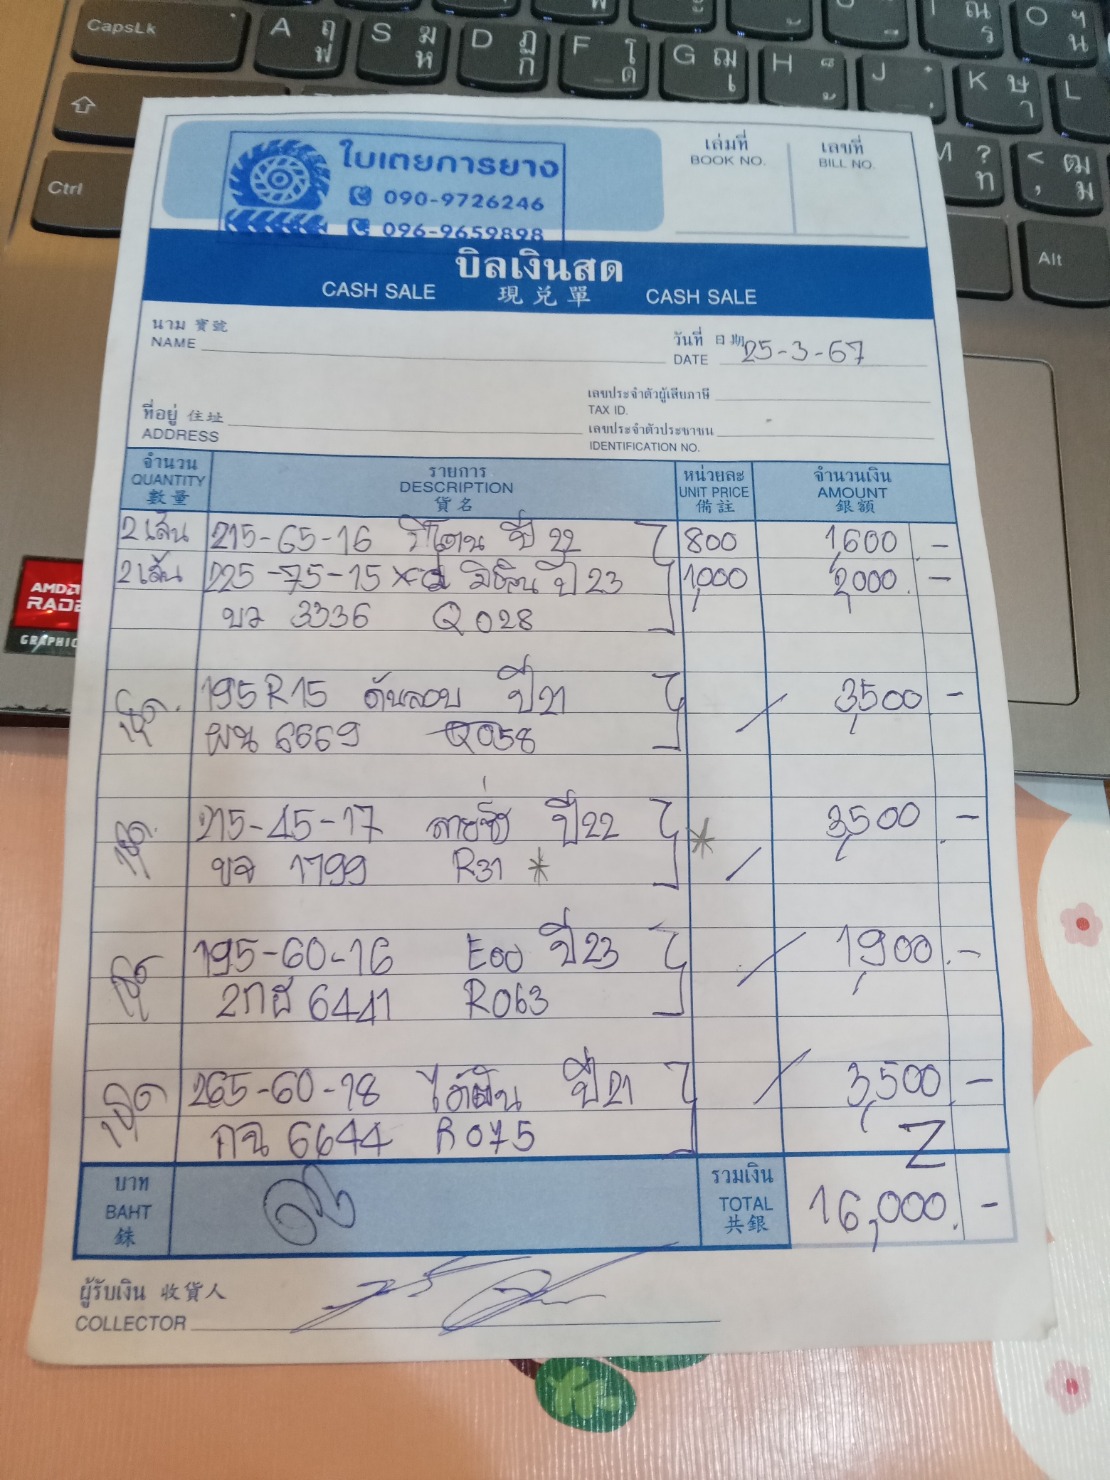 CapsLk A ฤ ฟ S ฆ ห D ฏ ก F โ ด G ฌ เ H ็ ้ J ๋ ่ K ษ า L
ณ ร O ฯ น
Ctrl M ? ท < , ฒ ม
Alt
AMD
RADE
GRAPHIC
ใบเตยการยาง
090-9726246
096-9659898
เล่มที่ เลขที่
BOOK NO. BILL NO.
บิลเงินสด
CASH SALE 現兌單 CASH SALE
นาม 寶號 วันที่ 日期
NAME DATE 25-3-67
เลขประจำตัวผู้เสียภาษี
TAX ID.
ที่อยู่ 住址 เลขประจำตัวประชาชน
ADDRESS IDENTIFICATION NO.
จำนวน รายการ หน่วยละ จำนวนเงิน
QUANTITY DESCRIPTION UNIT PRICE AMOUNT
數量 貨名 備註 銀額
2เส้น 215-65-16 ปี 22 800 1,600 -
2เส้น 225-75-15 มิชลิน ปี 23 1,000 2,000 -
บว 3336 Q028
195R15 ดันลอป ปี 21 3,500 -
ผน 6669 Q058
215-45-17 ปี 22 3,500 -
ขจ 1799 R31 *
195-60-16 ปี 23 1,900 -
6441 R063
265-60-18 ปี 21 3,500 -
กฉ 6644 R075
บาท รวมเงิน
BAHT TOTAL 16,000 -
銖 共銀
ผู้รับเงิน 收貨人
COLLECTOR